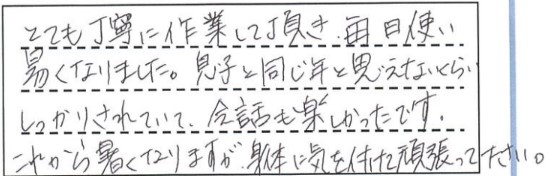 とても丁寧に作業して頂き、毎日使い
易くなりました。息子と同じ年と思えないくらい
しっかりされていて、会話も楽しかったです。
これから暑くなりますが、身体に気を付けて頑張って下さい。